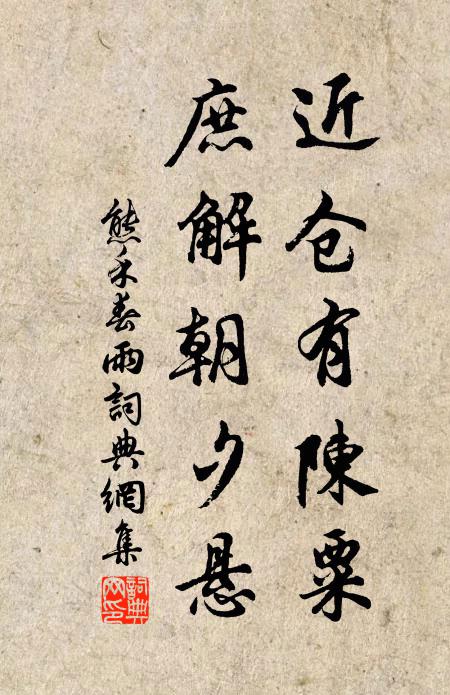 近仓有陳粟
庶解朝夕悬
熊禾春雨詞典網集
詞典網印